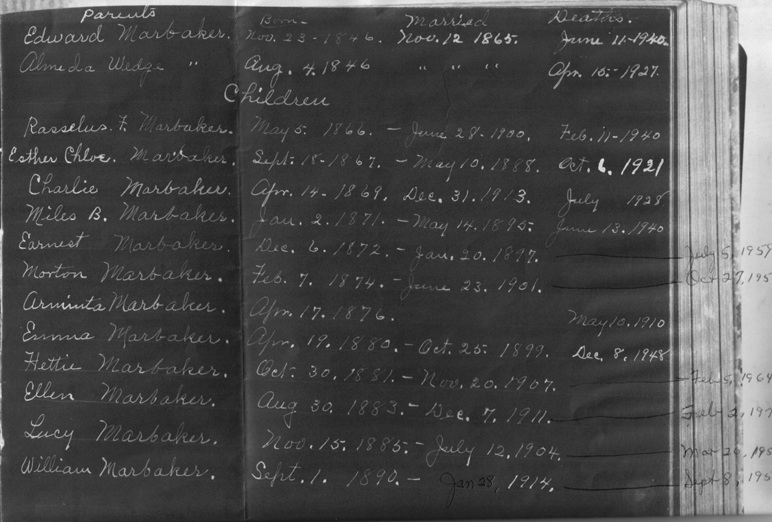 Parents Born- Married Deaths.
Edward Marbaker. Nov. 23-1846. Nov. 12 1865. June 11-1940.
Almeda Wedge " Aug. 4. 1846 " " " Apr. 15-1927.
Children
Rasselus. F. Marbaker. May 5. 1866. - June 28-1900. Feb. 11-1940
Esther Chloe. Marbaker. Sept. 18-1867. - May 10. 1888. Oct. 6, 1921
Charlie Marbaker. Apr. 14-1869. Dec. 31. 1913. July 1928
Miles B. Marbaker. Jan. 2. 1871. - May 14. 1895. June 13. 1940
Earnest Marbaker. Dec. 6. 1872. - Jan. 20. 1897. July 5, 195
Morton Marbaker. Feb. 7. 1874. - June 23. 1901. Oct 27, 195
Arminta Marbaker. Apr. 17. 1876. May 10. 1910
Emma Marbaker. Apr. 19. 1880. - Oct. 25. 1899. Dec. 8, 1948
Hettie Marbaker. Oct. 30. 1881. - Nov. 20. 1907. Feb 5, 1964
Ellen Marbaker. Aug 30. 1883. - Dec. 7. 1911. Feb 2, 197
Lucy Marbaker. Nov. 15. 1885. - July 12, 1904. Mar 195
William Marbaker. Sept. 1. 1890. - Jan 28, 1914. Sept 8, 195